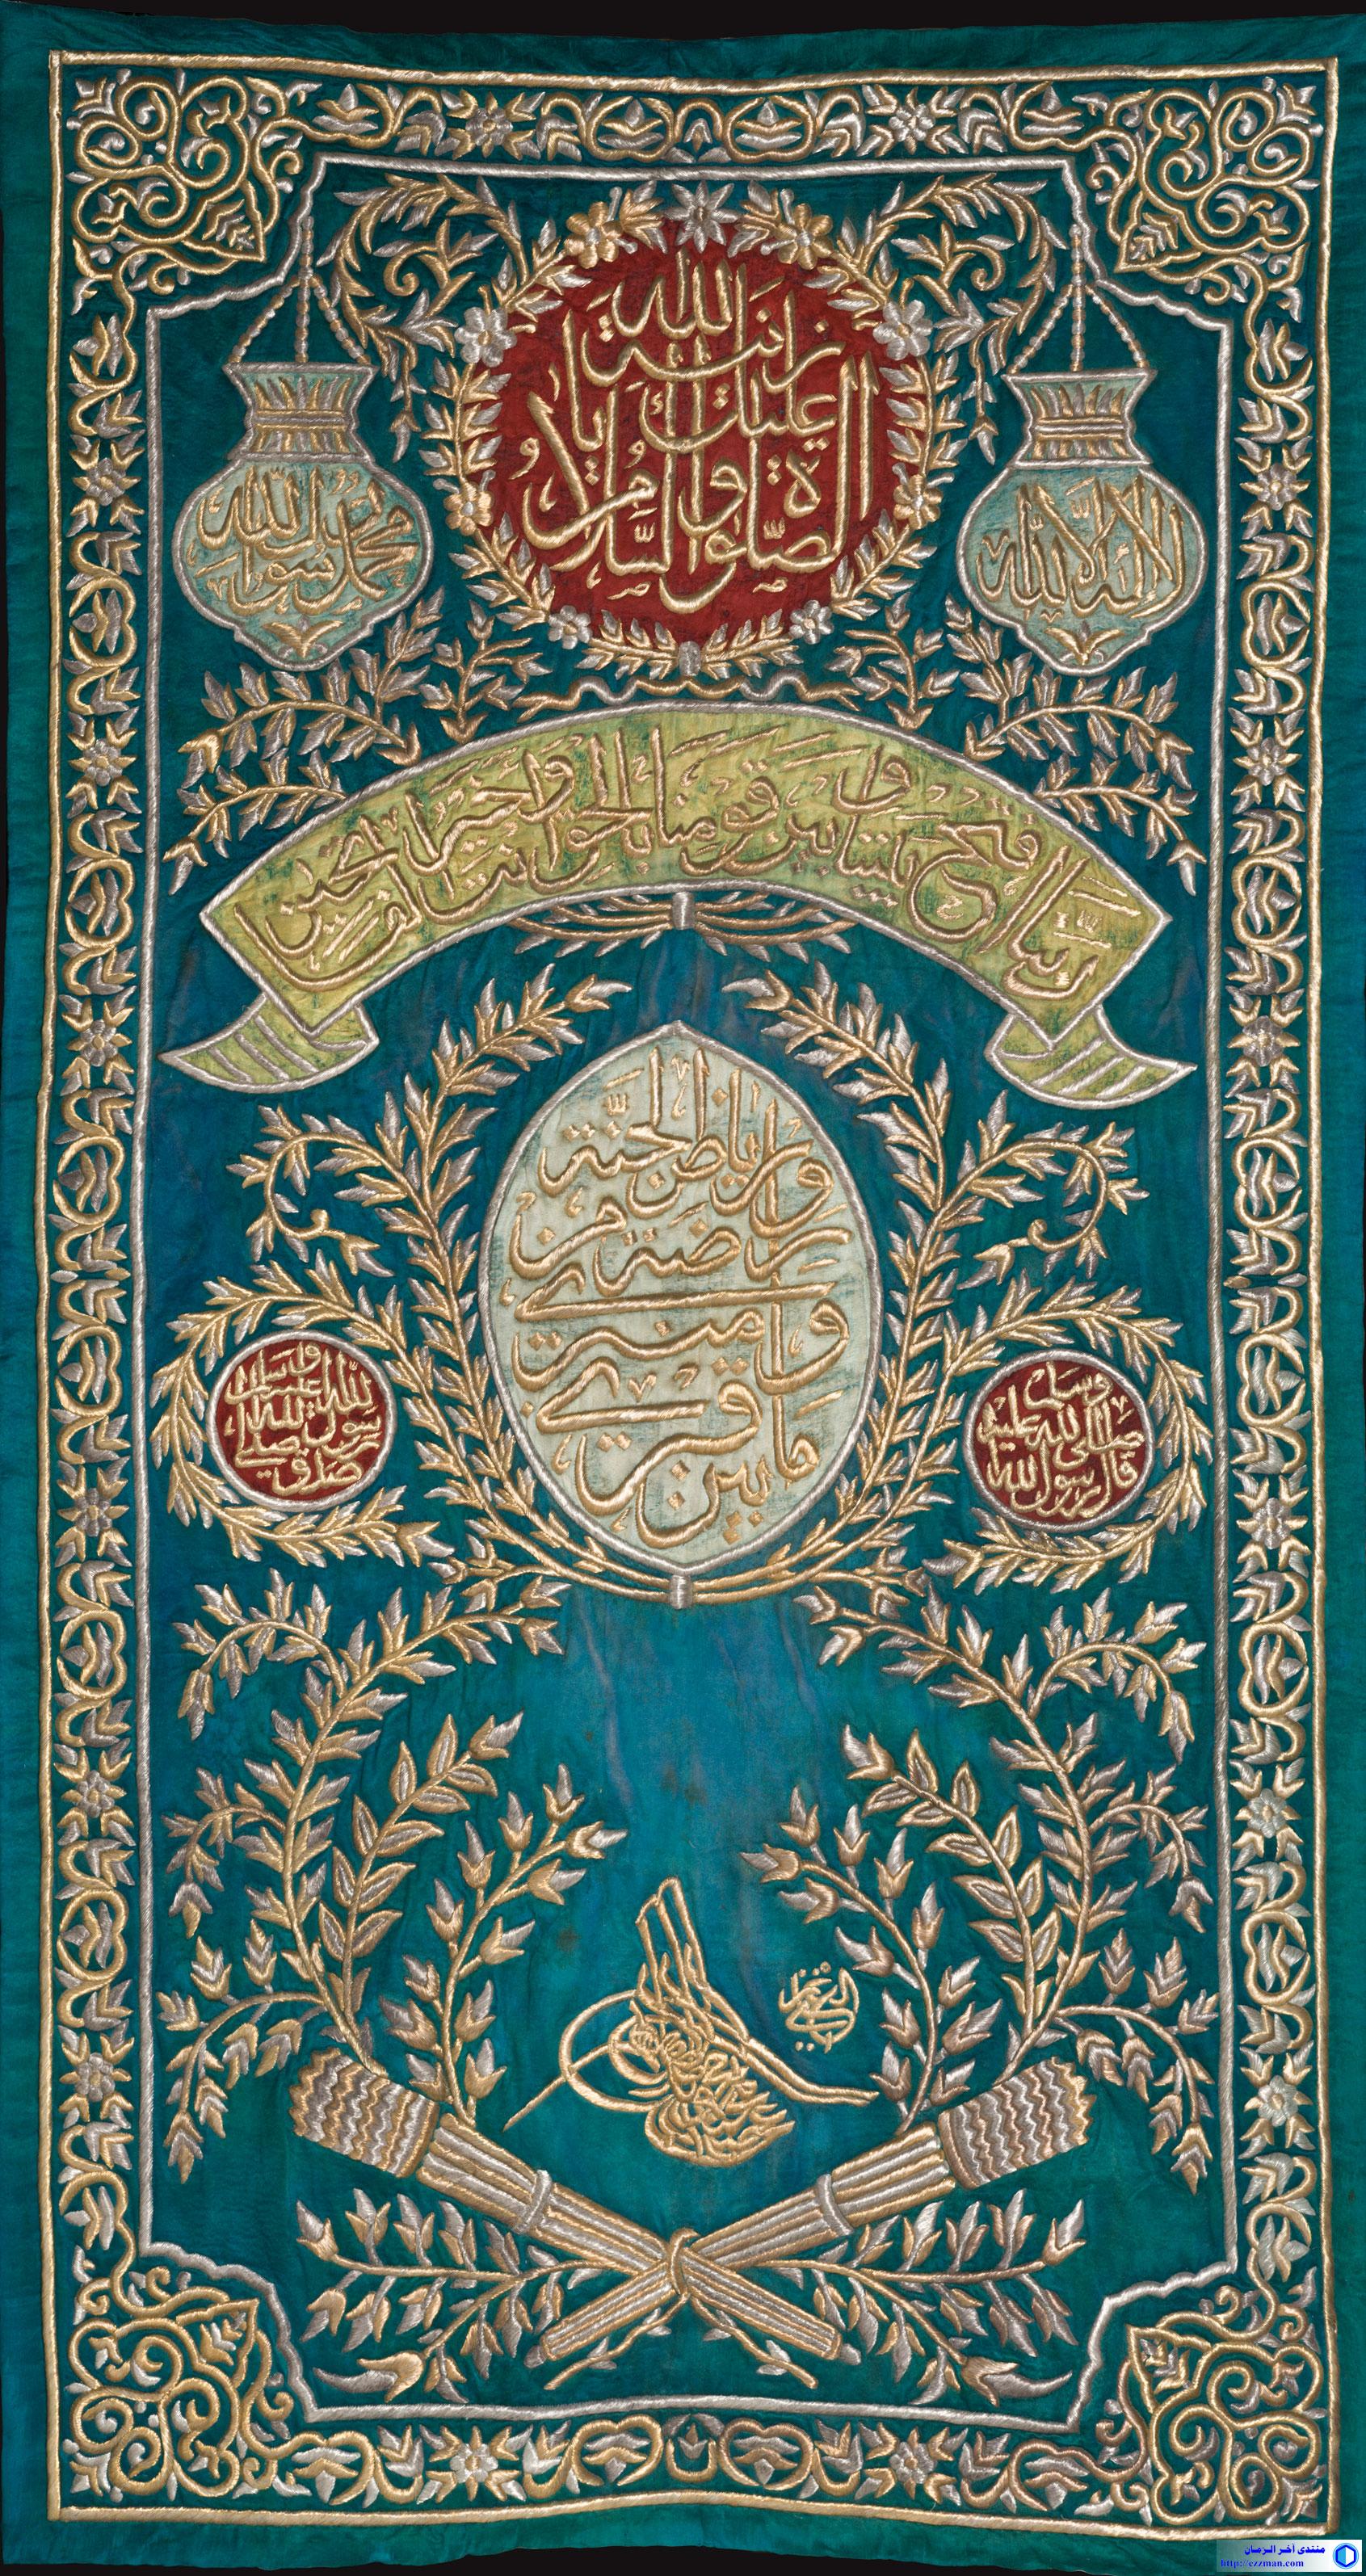 الصلوة والسلام عليك يا
الله
لا اله الا الله
محمد رسول الله
ربنا افتح بيننا وبين قومنا بالحق وانت خير الفاتحين
ما بين قبري
ومنبري
روضة من
رياض الجنة
قال رسول الله
صلى الله عليه
وسلم
صدق
رسول الله صلى
الله عليه وسلم
منتدى آخر الزمان
http://ezzman.com